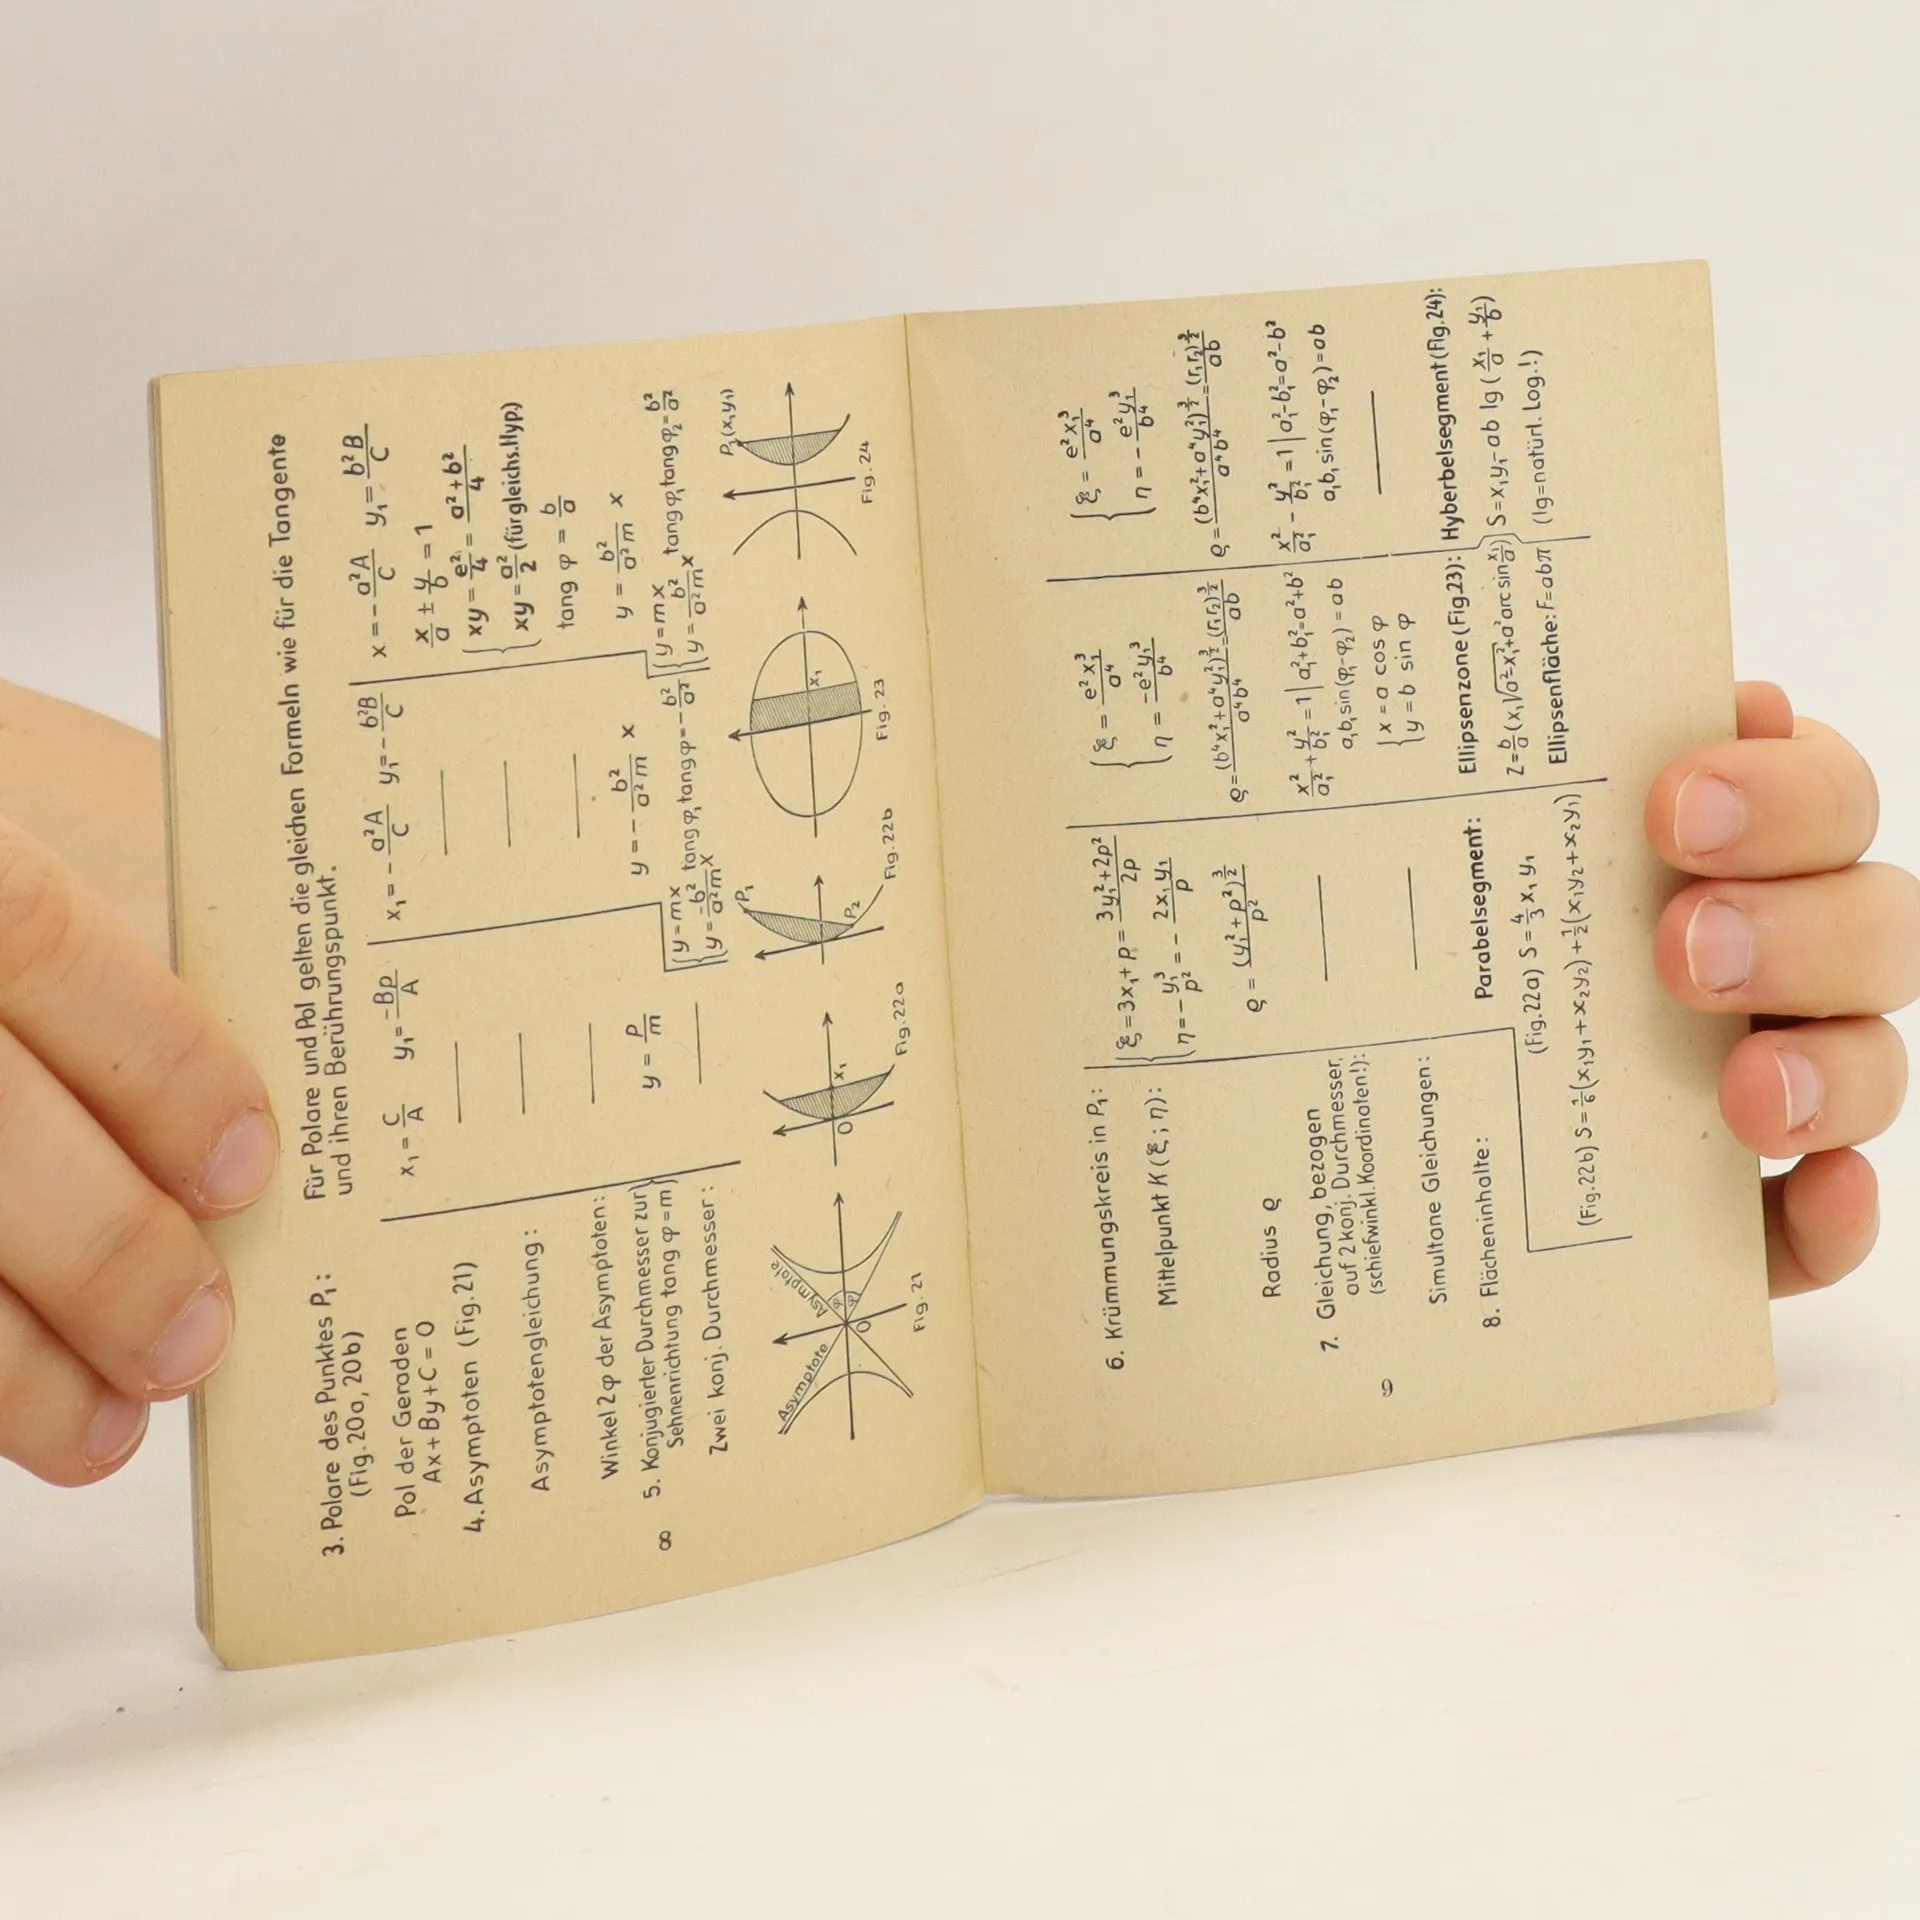 Für Polare und Pol gelten die gleichen Formeln wie für die Tangente
und ihren Berührungspunkt.
3. Polare des Punktes P₁:
(Fig. 20a, 20b)
Pol der Geraden
Ax + By + C = 0
x₁ = C/A y₁ = -Bp/A
x₁ = - a²A/C y₁ = - b²B/C
x = - a²A/C y₁ = b²B/C
4. Asymptoten (Fig. 21)
x/a ± y/b = 1
Asymptotengleichung:
xy = e²/4 = a² + b²/4
xy = a²/2 (für gleichs. Hyp.)
Winkel 2φ der Asymptoten:
tang φ = b/a
5. Konjugierter Durchmesser zur
Sehnenrichtung tang φ = m
y = p/m
y = - b²/a²m x
y = b²/a²m x
Zwei konj. Durchmesser:
y = mx
y = -b²/a²m x tang φ₁ tang φ = - b²/a²
y = mx
y = b²/a²m x tang φ₁ tang φ₂ = b²/a²
Asymptote
Asymptote
φ
φ
O
Fig. 21
O
x₁
Fig. 22a
P₁
P₂
Fig. 22b
x₁
Fig. 23
P₁(x₁y₁)
Fig. 24
8
6. Krümmungskreis in P₁:
Mittelpunkt K(ξ; η):
ξ = 3x₁ + p = 3y₁² + 2p²/2p
η = - y₁³/p² = - 2x₁y₁/p
ξ = e²x₁³/a⁴
η = -e²y₁³/b⁴
ξ = e²x₁³/a⁴
η = - e²y₁³/b⁴
Radius ϱ
ϱ = (y₁² + p²)^3/2/p²
ϱ = (b⁴x₁² + a⁴y₁²)^3/2/a⁴b⁴ = (r₁r₂)^3/2/ab
ϱ = (b⁴x₁² + a⁴y₁²)^3/2/a⁴b⁴ = (r₁r₂)^3/2/ab
7. Gleichung, bezogen
auf 2 konj. Durchmesser,
(schiefwinkl. Koordinaten!):
x²/a₁² + y²/b₁² = 1 | a₁² + b₁² = a² + b²
a₁b₁ sin(φ₁ - φ₂) = ab
x²/a₁² - y²/b₁² = 1 | a₁² - b₁² = a² - b²
a₁b₁ sin(φ₁ - φ₂) = ab
Simultane Gleichungen:
x = a cos φ
y = b sin φ
8. Flächeninhalte:
Parabelsegment:
(Fig. 22a) S = 4/3 x₁y₁
(Fig. 22b) S = 1/6(x₁y₁ + x₂y₂) + 1/2(x₁y₂ + x₂y₁)
Ellipsenzone (Fig. 23):
Z = b/a (x₁√a² - x₁² + a² arc sin x₁/a)
Ellipsenfläche: F = abπ
Hyberbelsegment (Fig. 24):
S = x₁y₁ - ab lg (x₁/a + y₁/b)
(lg = natürl. Log.!)
9